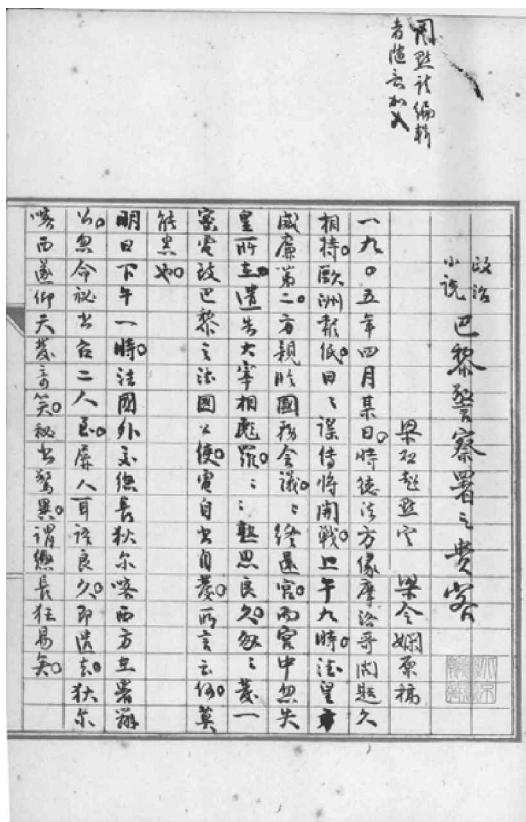 圈點請編輯
者隨意加入
政治
小說 巴黎警察署之貴客
梁啟超點定 梁令嫻原稿
一九〇五年四月某日。時德法方緣摩洛哥問題久
相持。歐洲報紙。日〻謀傳將開戰。上午九時。德皇
威廉第二。方親臨國務會議。〻終還宮。而宮中忽失
皇所在。遣告大宰相彪羅。〻〻熟思良久。忽〻發一
密電致巴黎之法國公使。電自書自發。所言云何。莫
能悉也。
明日下午一時。法國外交總長狄尔喀西方在署辦
公。忽令祕書召二人至。屏人耳語良久。即遣去。狄尔
喀西遂仰天發奇笑。祕書驚異。謂總長狂易矣。